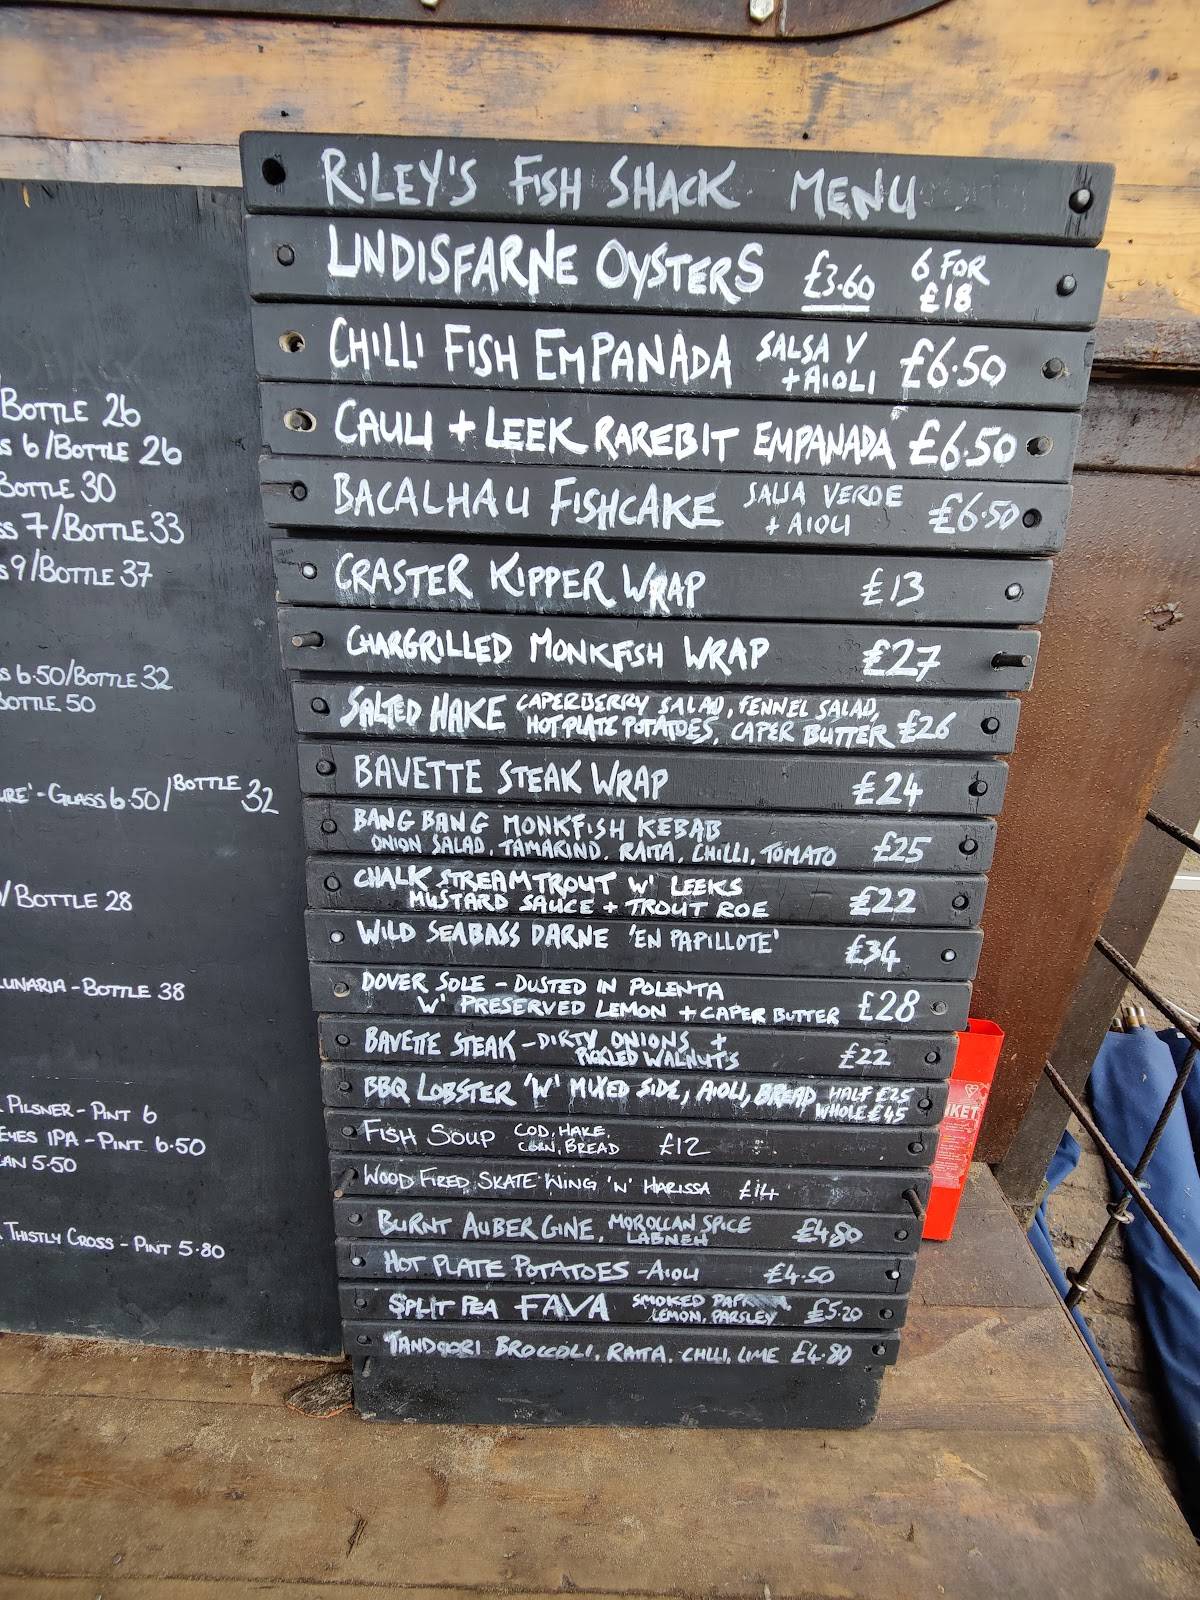 BOTTLE 26
6/BOTTLE 26
BOTTLE 30
7/BOTTLE 33
9/BOTTLE 37
6.50/BOTTLE 32
BOTTLE 50
- GLASS 6.50/BOTTLE 32
/BOTTLE 28
LUNARIA - BOTTLE 38
PILSNER - PINT 6
EYES IPA - PINT 6.50
5.50
THISTLY CROSS - PINT 5.80
RILEY'S FISH SHACK MENU
LINDISFARNE OYSTERS £3.60 6 FOR
£18
CHILLI FISH EMPANADA SALSA V
+ AIOLI £6.50
CAULI + LEEK RAREBIT EMPANADA £6.50
BACALHAU FISHCAKE SALSA VERDE
+ AIOLI £6.50
CRASTER KIPPER WRAP £13
CHARGRILLED MONKFISH WRAP £27
SALTED HAKE CAPERBERRY SALAD, FENNEL SALAD,
HOTPLATE POTATOES, CAPER BUTTER £26
BAVETTE STEAK WRAP £24
BANG BANG MONKFISH KEBAB
ONION SALAD, TAMARIND, RAITA, CHILLI, TOMATO £25
CHALK STREAM TROUT W' LEEKS
MUSTARD SAUCE + TROUT ROE £22
WILD SEABASS DARNE 'EN PAPILLOTE' £34
DOVER SOLE - DUSTED IN POLENTA
W' PRESERVED LEMON + CAPER BUTTER £28
BAVETTE STEAK - DIRTY ONIONS +
PICKLED WALNUT'S £22
BBQ LOBSTER 'W' MIXED SIDE, AIOLI, BREAD HALF £25
WHOLE £45
FISH SOUP COD, HAKE,
CORN, BREAD £12
WOOD FIRED SKATE WING 'N' HARISSA £14
BURNT AUBERGINE, MOROCCAN SPICE
LABNEH £4.80
HOT PLATE POTATOES - AIOLI £4.50
SPLIT PEA FAVA SMOKED PAPRIKA
LEMON, PARSLEY £5.20
TANDOORI BROCCOLI, RAITA, CHILLI, LIME £4.80